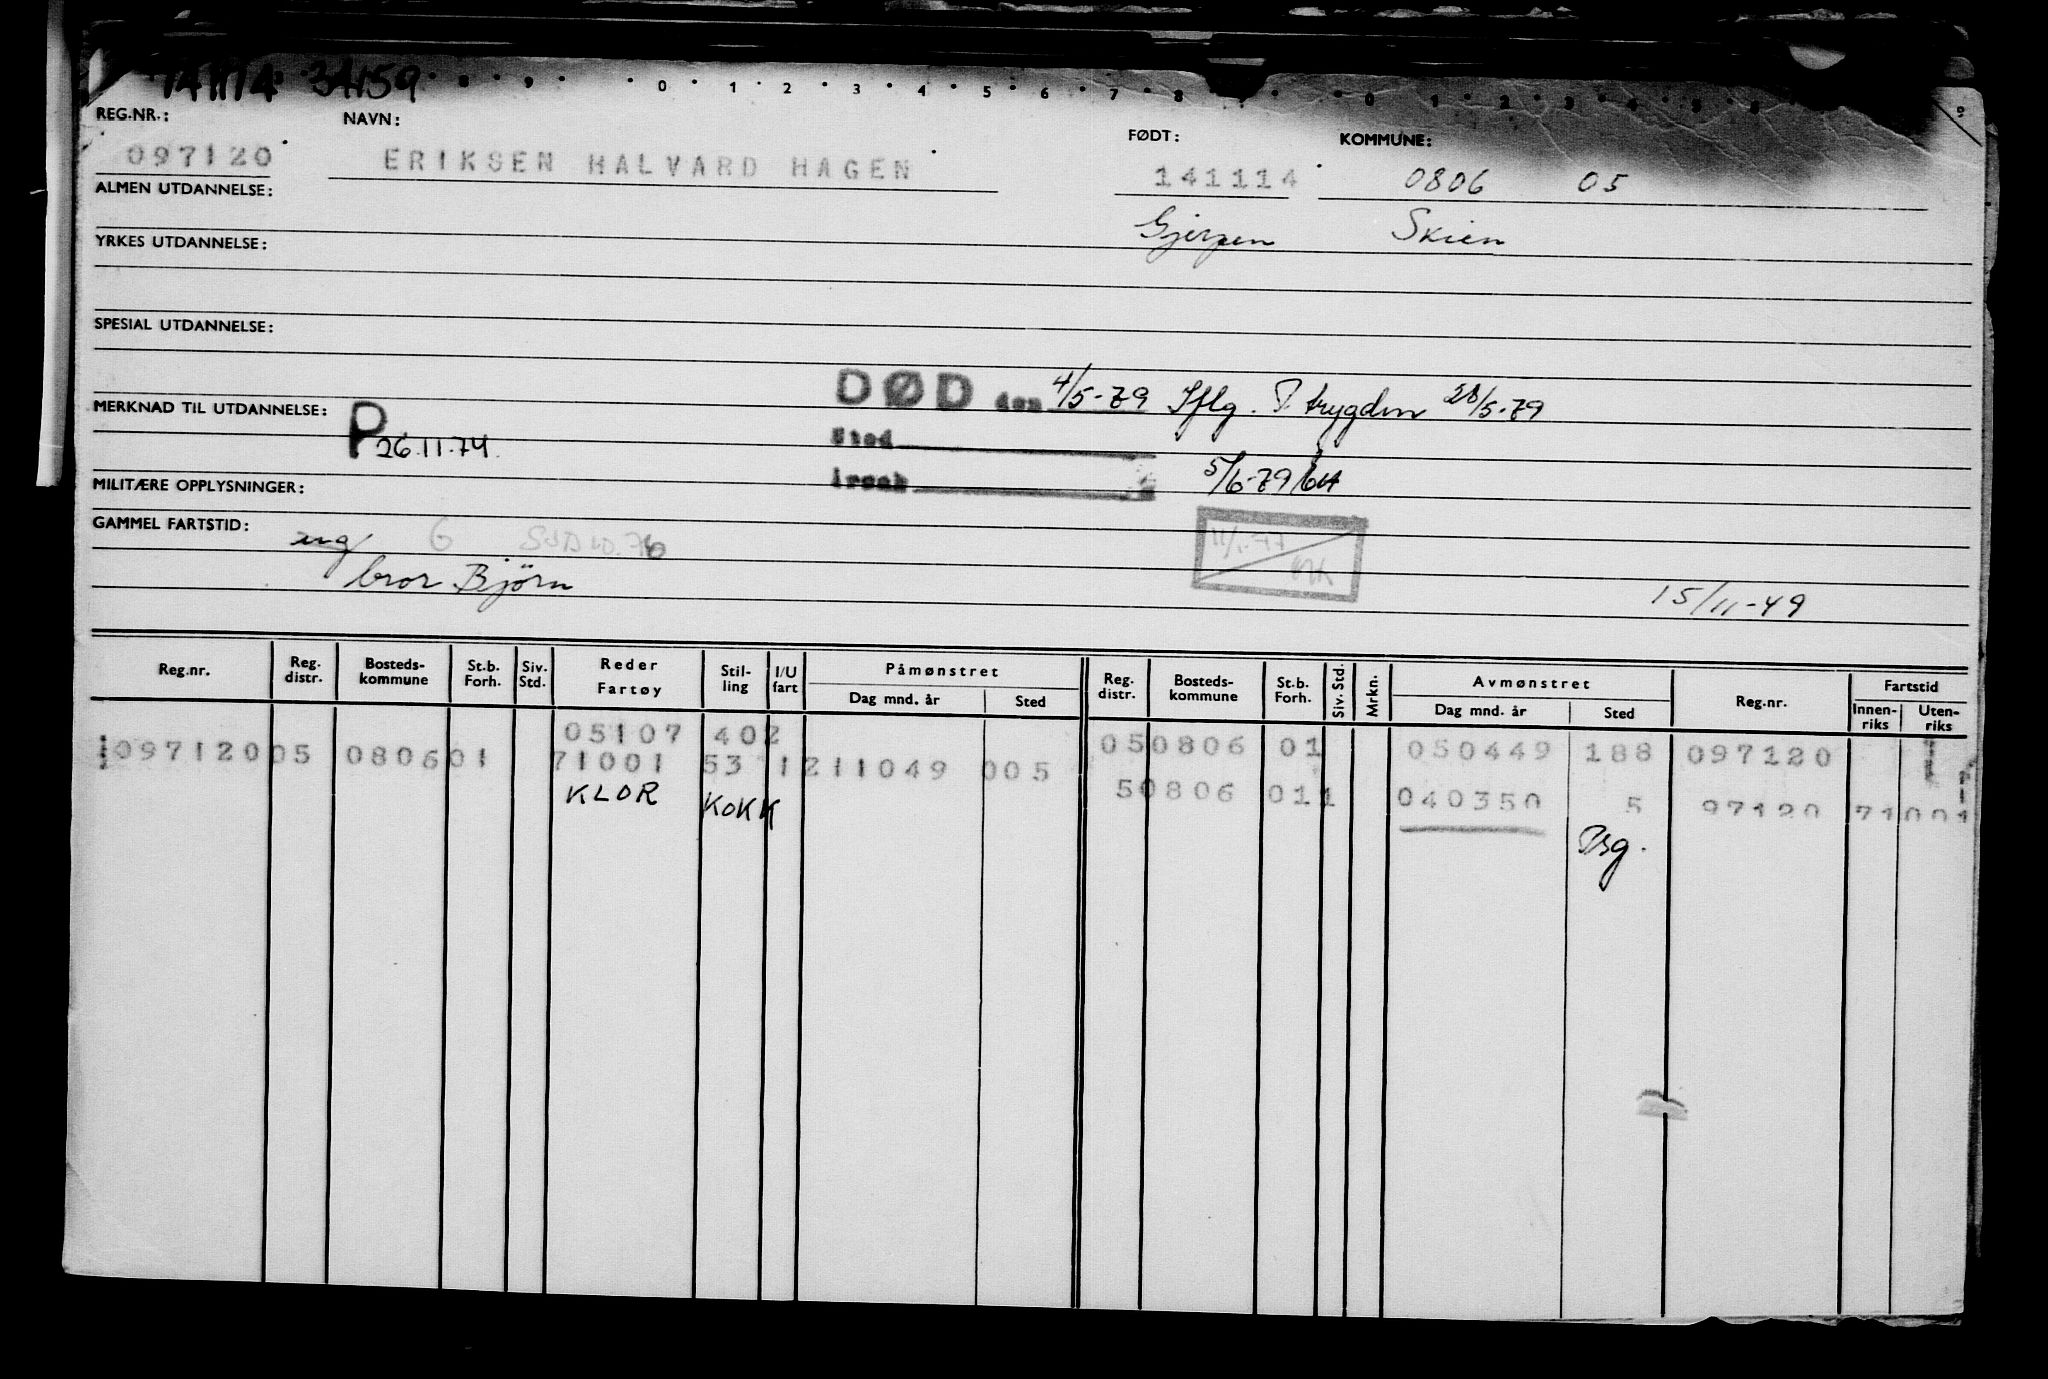 141114 34159
8 9 0 1 2 3 4 5 6 7 8 0 1 2 3 4 5 6
REG.NR.: NAVN: FØDT: KOMMUNE:
097120 ERIKSEN HALVARD HAGEN 141114 0806 05
ALMEN UTDANNELSE:
Gjerpen Skien
YRKES UTDANNELSE:
SPESIAL UTDANNELSE:
DØD den 4/5-79 Iflg. P. trygden 28/5-79
MERKNAD TIL UTDANNELSE: P 26.11.74
Sted
5/6-79
MILITÆRE OPPLYSNINGER:
GAMMEL FARTSTID: ug 6
11/1-77
bror Bjørn
15/11-49
Reg.nr. Reg. distr. Bosteds-kommune St.b. Forh. Siv. Std. Reder Fartøy Stil-ling I/U fart Påmønstret Dag mnd. år Sted Reg. distr. Bosteds-kommune St.b. Forh. Siv. Std. Mrkn. Avmønstret Dag mnd. år Sted Reg.nr. Fartstid Innen-riks Uten-riks
05107 402 050806 01 050449 188 097120
097120 05 0806 01 71001 53 1 211049 005
KLOR KOKK 50806 011 040350 5 97120 71001
Psg.